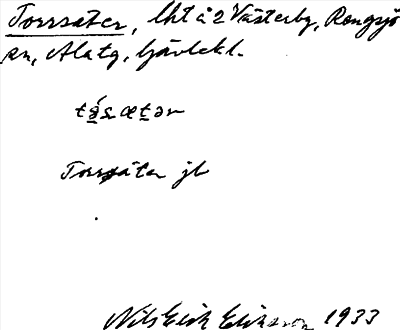 Torrsäter, lht å 2 Västerby, Rengsjö
sn, Alatg, Gävlebl.
tǻsætər
Torrsäter jb
Nils Erik Eriksson 1933